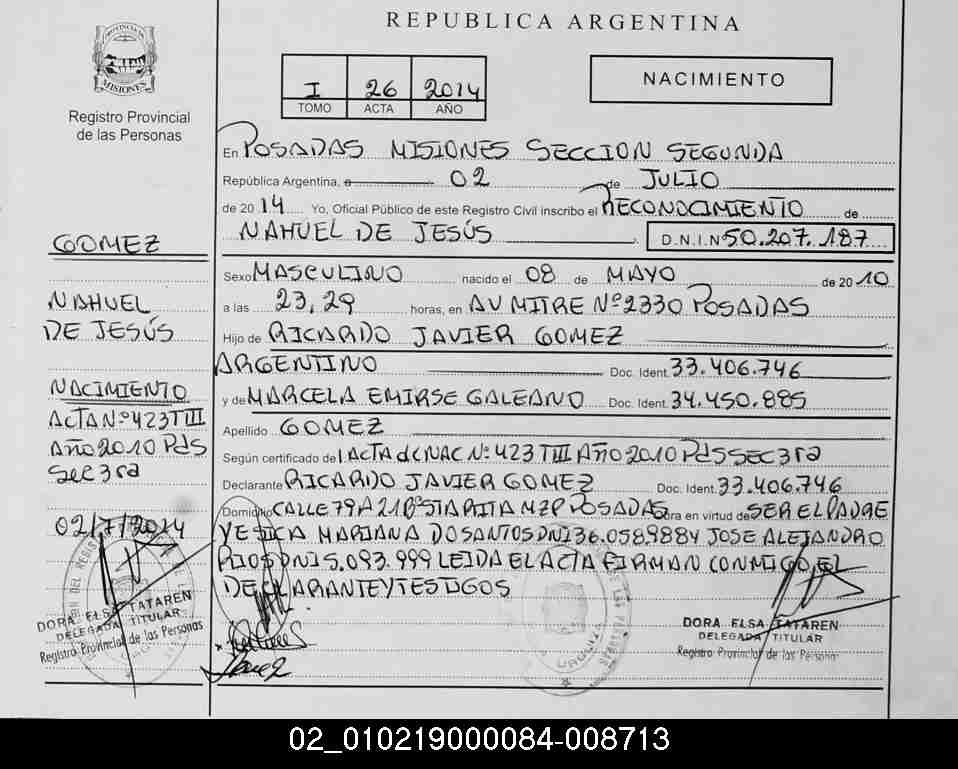 REPUBLICA ARGENTINA
PROVINCIA DE
MISIONES
Registro Provincial
de las Personas
I 26 2014
TOMO ACTA AÑO
NACIMIENTO
En POSADAS MISIONES SECCION SEGUNDA
República Argentina, a 02 de JULIO
de 2014 Yo, Oficial Público de este Registro Civil inscribo el RECONOCIMIENTO de
NAHUEL DE JESÚS D.N.I.Nº 50.207.187
Sexo MASCULINO nacido el 08 de MAYO de 2010
a las 23,29 horas, en AV MITRE Nº2330 POSADAS
Hijo de RICARDO JAVIER GOMEZ
ARGENTINO Doc. Ident. 33.406.746
y de MARCELA EMIRSE GALEANO Doc. Ident. 34.450.885
Apellido GOMEZ
Según certificado de ACTA de NAC Nº 423 TIII AÑO 2010 PdS SEC 3ra
Declarante RICARDO JAVIER GOMEZ Doc. Ident. 33.406.746
Domicilio CALLE 79 A 21 Bº STA RITA MZP POSADAS Obra en virtud de SER EL PADRE
YESICA MARIANA DOSANTOS DNI 36.058.988 Y JOSE ALEJANDRO
RIOS DNI 5.093.999 LEIDA EL ACTA FIRMAN CONMIGO, EL
DECLARANTE Y TESTIGOS
GOMEZ
NAHUEL
DE JESÚS
NACIMIENTO
ACTA Nº 423 TIII
Año 2010 PdS
Sec 3ra
02/7/2014
DORA ELSA TATAREN
DELEGADA TITULAR
Registro Provincial de las Personas
DORA ELSA TATAREN
DELEGADA TITULAR
Registro Provincial de las Personas
02_010219000084-008713